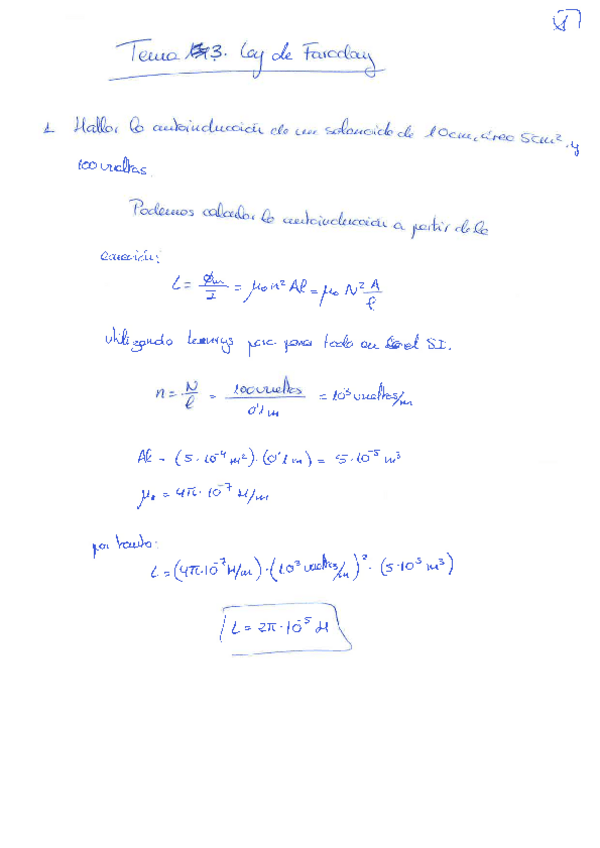 1
Tema 3. Ley de Faraday
1. Hallar la autoinducción de un solenoide de 10cm, área 5cm², y
100 vueltas.
Podemos calcular la autoinducción a partir de la
ecuación:
L = Φm/I = μ₀ n² Aℓ = μ₀ N² A/ℓ
utilizando para pasar todo en el SI.
n = N/ℓ = 100 vueltas/0'1 m = 10³ vueltas/m
Aℓ = (5·10⁻⁴ m²)·(0'1 m) = 5·10⁻⁵ m³
μ₀ = 4π·10⁻⁷ H/m
por tanto:
L = (4π·10⁻⁷ H/m)·(10³ vueltas/m)²·(5·10⁵ m³)
L = 2π·10⁻⁵ H